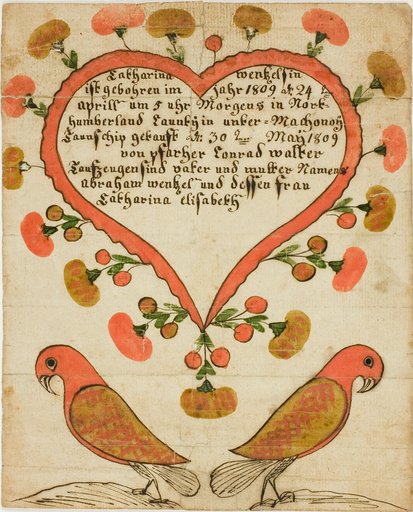 Catharina wentzelsin
ist gebohren im Jahr 1809 24
aprill um 5 uhr Morgens in Nort
humberland Caunty in unter=Machonoy
Taunschip getauft 30 May 1809
von pfarher Conrad walter
Taufzeugen sind vater und mutter Namens
abraham wentzel und dessen frau
Catharina elisabeth